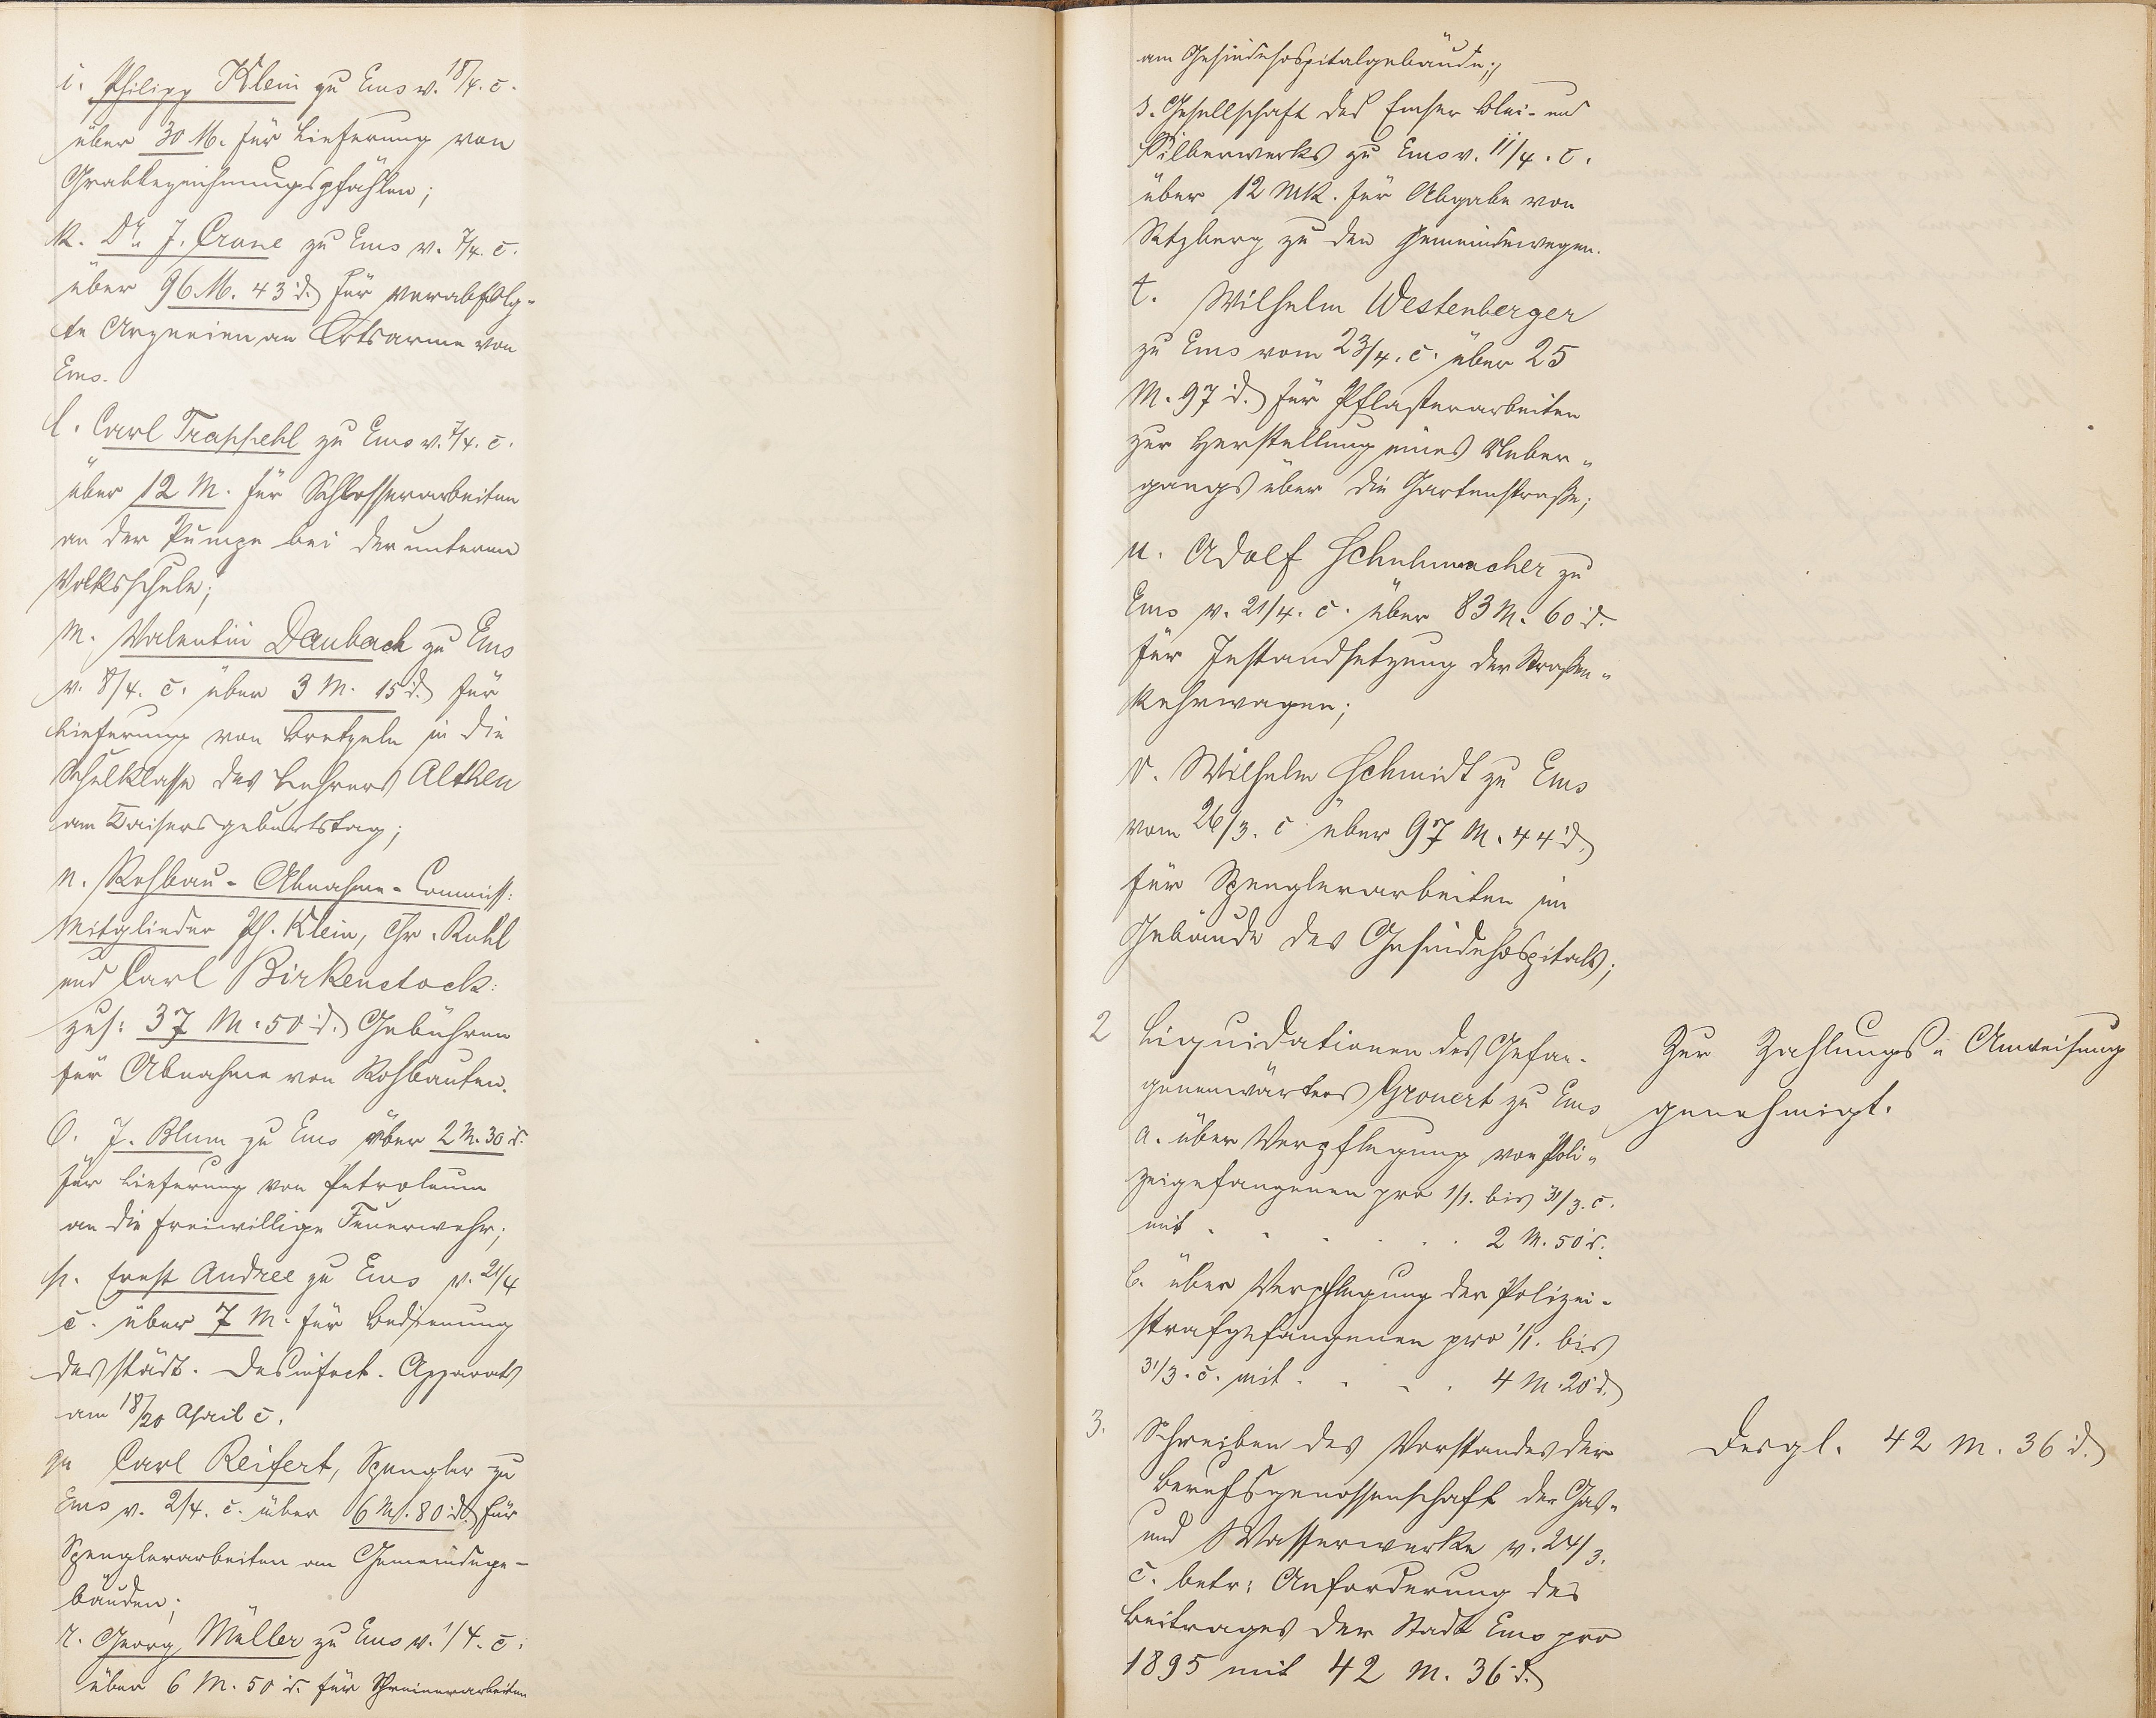 i. Philipp Klein zu Ems v. 18/4. c.
über 30 M. für Lieferung von
Grabbezeichnungspfählen;
k. Dr. J. Crone zu Ems v. 7/4. c.
über 96 M. 43 d. für verabfolg-
te Arzneien an Ortsarme von
Ems.
l. Carl Trappehl zu Ems v. 7/4. c.
über 12 M. für Schlosserarbeiten
an der Pumpe bei der unteren
Volksschule;
m. Valentin Daubach zu Ems
v. 8/4. c. über 3 M. 15 d. für
Lieferung von Bretzeln in die
Schulklasse des Lehrers Althen
am Kaisersgeburtstag;
n. Rohbau-Abnahme-Commiss:
Mitglieder Ph. Klein, Chr. Ruhl
und Carl Birkenstock:
zus: 37 M. 50 d. Gebühren
für Abnahme von Rohbauten.
o. J. Blum zu Ems über 2 M. 30 d.
für Lieferung von Petroleum
an die freiwillige Feuerwehr;
p. Ernst Andree zu Ems v. 21/4
c. über 7 M. für Bedienung
des städt. Desinfect. Apparats
am 18/20 April c.
q. Carl Reifert, Spengler zu
Ems v. 2/4. c. über 6 M. 80 d. für
Spenglerarbeiten an Gemeindege-
bäuden;
r. Georg Müller zu Ems v. 1/4. c.
über 6 M. 50 d. für Schreinerarbeiten
am Gesindehospitalgebäude;
s. Gesellschaft des Emser Blei- und
Silberwerks zu Ems v. 11/4. c.
über 12 Mk. für Abgabe von
Setzberg zu den Gemeindewegen.
t. Wilhelm Westenberger
zu Ems vom 23/4. c. über 25
M. 97 d. für Pflasterarbeiten
zur Herstellung eines Ueber-
gangs über die Gartenstraße;
u. Adolf Schuhmacher zu
Ems v. 21/4. c. über 83 M. 60 d.
für Instandsetzung der Straßen-
kehrwagen;
v. Wilhelm Schmidt zu Ems
vom 26/3. c über 97 M. 44 d.
für Spenglerarbeiten im
Gebäude des Gesindehospitals;
2 Liquidationen des Gefan-
genenwärters Grouert zu Ems
a. über Verpflegung von Poli-
zeigefangenen pro 1/1. bis 31/3. c.
mit . . . . . 2 M. 50 d.
b. über Verpflegung der Polizei-
strafgefangenen pro 1/1. bis
31/3. c. mit . . . . 4 M. 20 d.
Zur Zahlungs-Anweisung
genehmigt.
3. Schreiben des Vorstandes der
Berufsgenossenschaft der Gas-
und Wasserwerke v. 24/3.
c. betr: Anforderung des
Beitrages der Stadt Ems pro
1895 mit 42 M. 36 d.
Desgl. 42 M. 36 d.